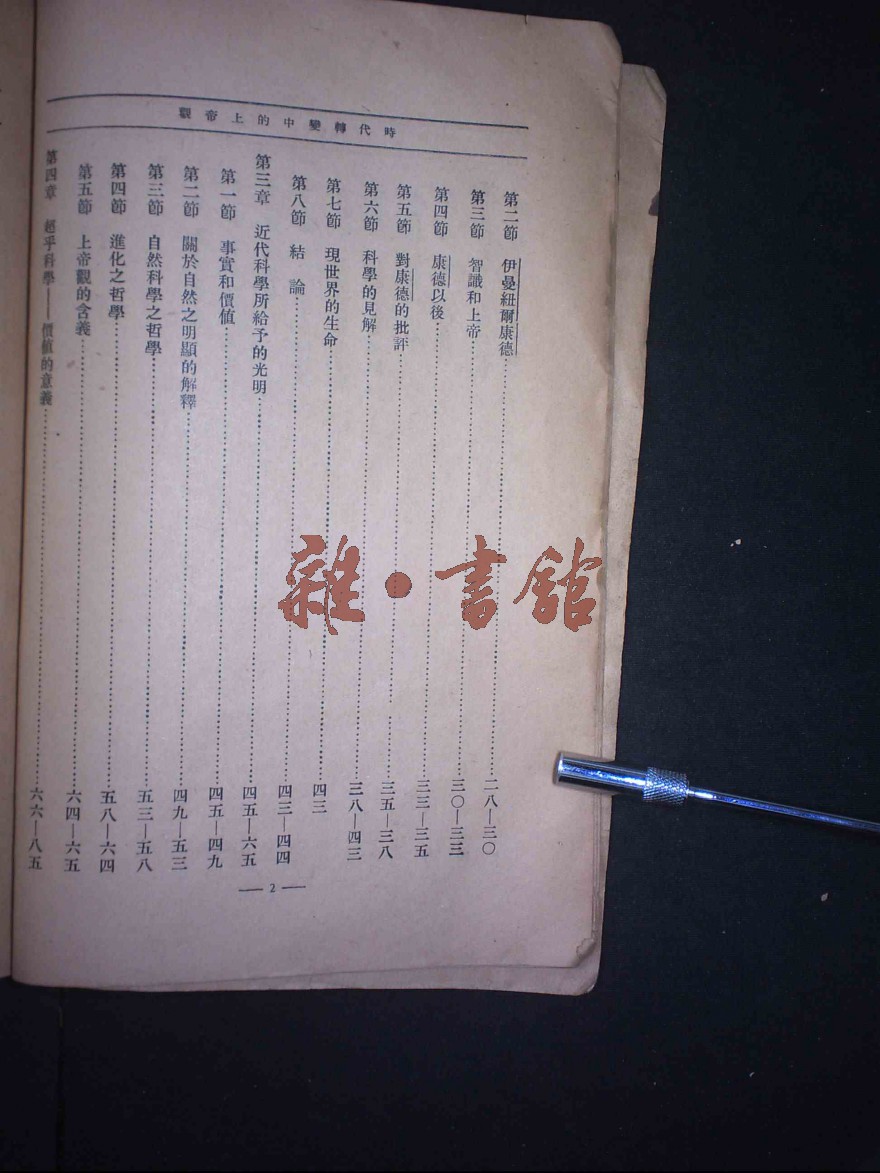 時代轉變中的上帝觀
第二節 伊曼紐爾康德……二八—三〇
第三節 智識和上帝……三〇—三三
第四節 康德以後……三三—三五
第五節 對康德的批評……三五—三八
第六節 科學的見解……三八—四三
第七節 現世界的生命……四三
第八節 結論……四三—四四
第三章 近代科學所給予的光明……四五—六五
第一節 事實和價值……四五—四九
第二節 關於自然之明顯的解釋……四九—五三
第三節 自然科學之哲學……五三—五八
第四節 進化之哲學……五八—六四
第五節 上帝觀的含義……六四—六五
第四章 超乎科學——價值的意義……六六—八五
— 2 —
雜·書館